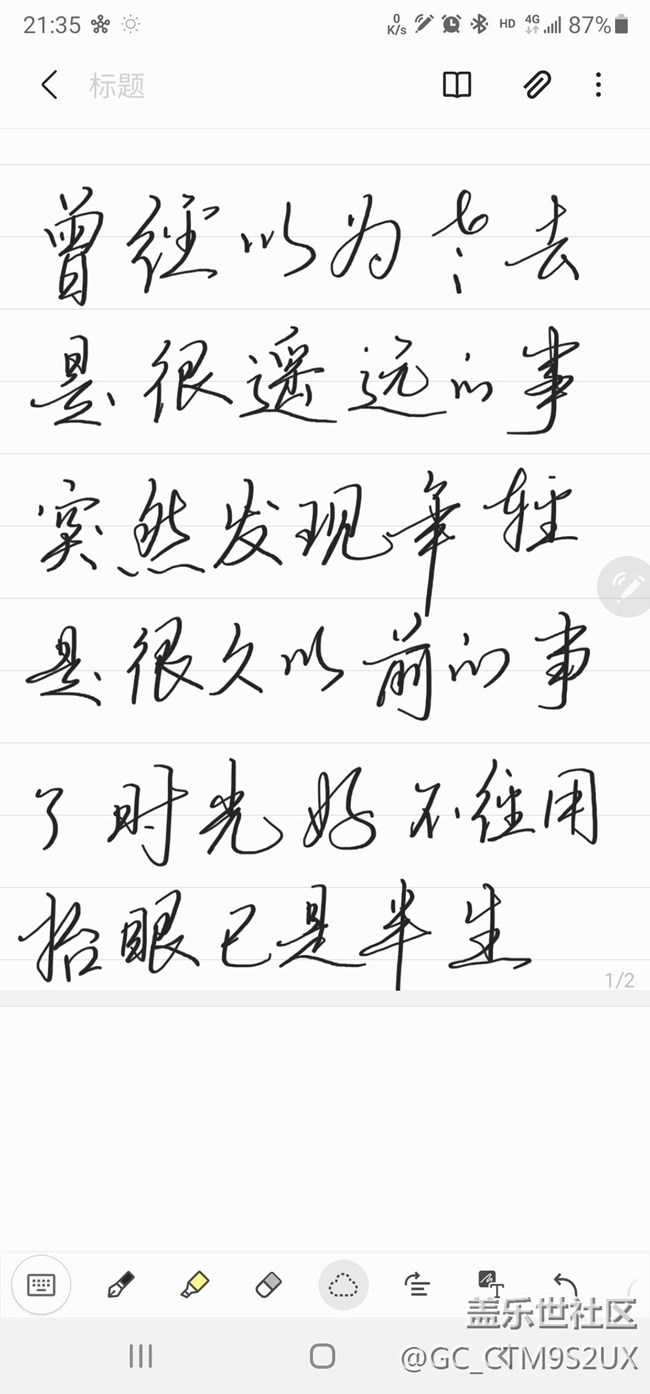 21:35 0 K/s HD 4G 87%
标题
曾经以为老去
是很遥远的事
突然发现年轻
是很久以前的事
了时光好不经用
抬眼已是半生
1/2
T
盖乐世社区
@GC_CTM9S2UX